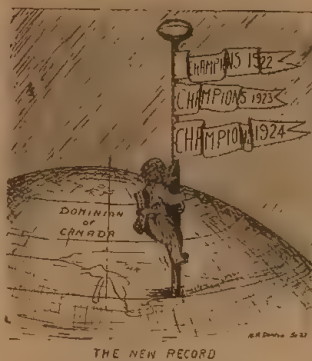 CHAMPIONS 1922
CHAMPIONS 1923
CHAMPIONS 1924
DOMINION
OF
CANADA
THE NEW RECORD